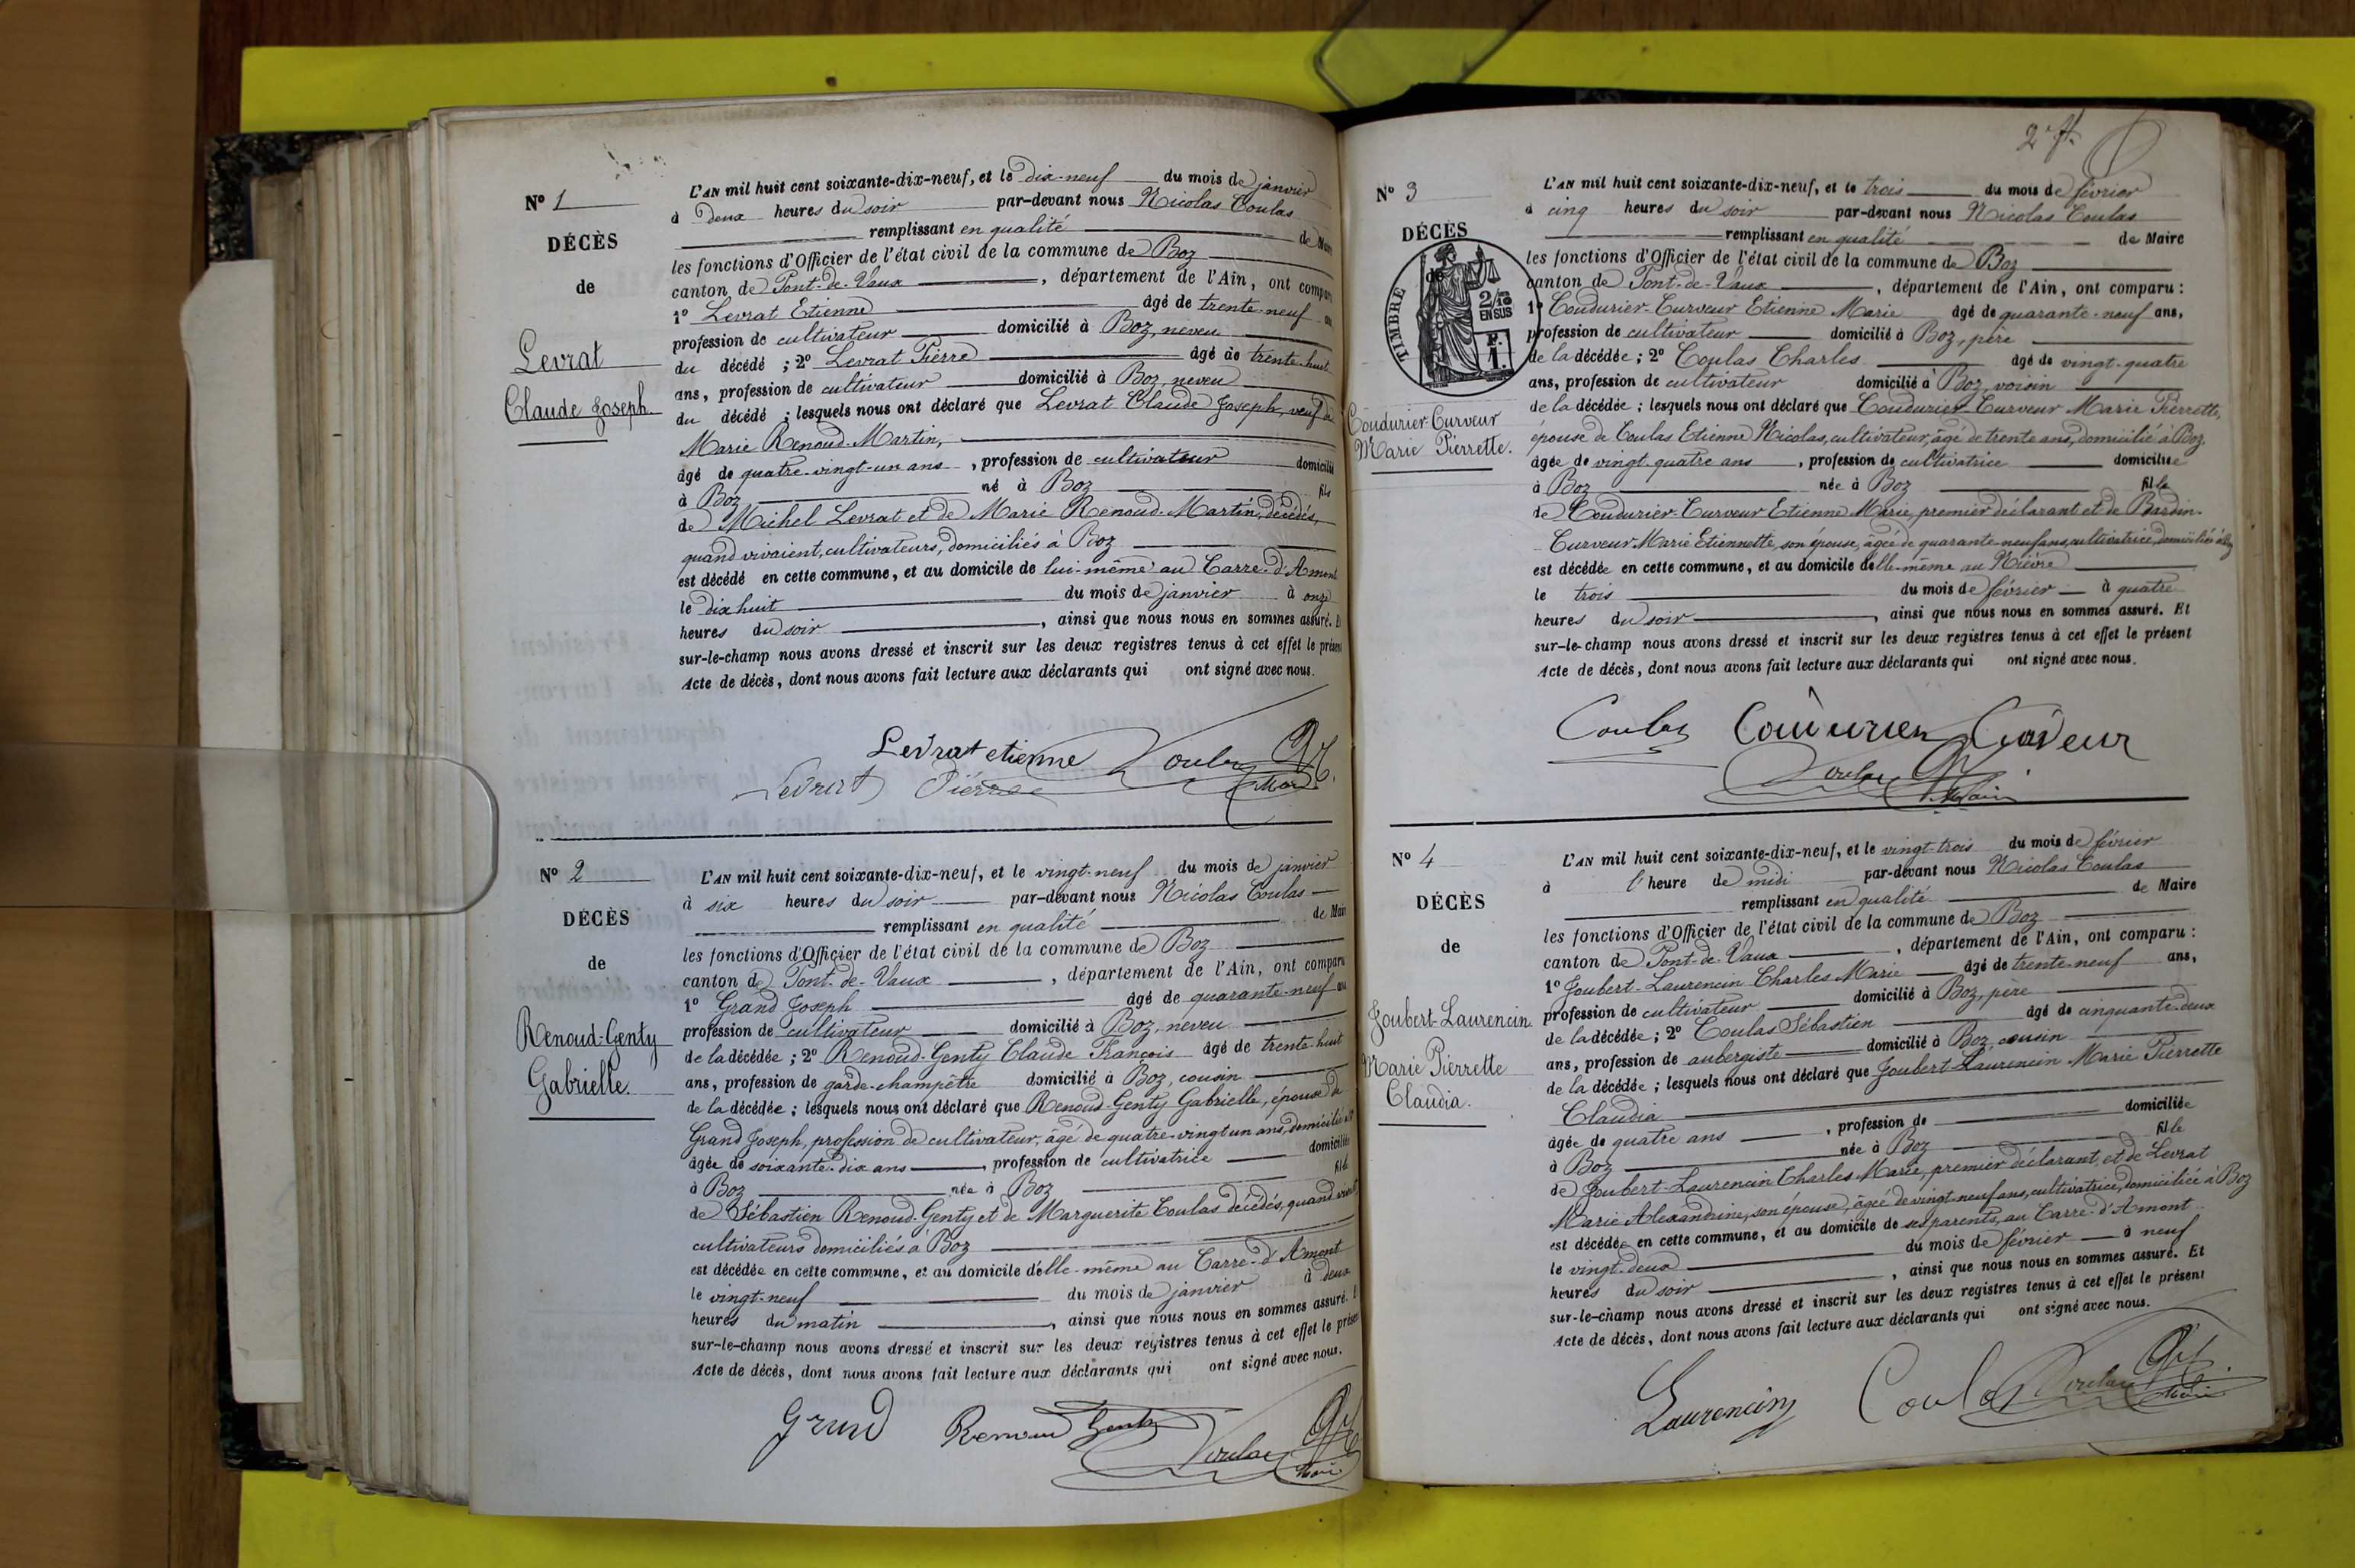 N° 1
DÉCÈS
de
Levrat
Claude Joseph.
L'AN mil huit cent soixante-dix-neuf, et le dix-neuf du mois de janvier
à deux heures du soir par-devant nous Nicolas Coulas
remplissant en qualité de Maire
les fonctions d'Officier de l'état civil de la commune de Boz
canton de Pont-de-Vaux, département de l'Ain, ont comparu
1° Levrat Etienne âgé de trente-neuf ans
profession de cultivateur domicilié à Boz, neveu
du décédé ; 2° Levrat Pierre âgé de trente-huit
ans, profession de cultivateur domicilié à Boz, neveu
du décédé ; lesquels nous ont déclaré que Levrat Claude Joseph, veuf de
Marie Renoud-Martin,
âgé de quatre-vingt-un ans, profession de cultivateur domicilié
à Boz né à Boz fils
de Michel Levrat et de Marie Renoud-Martin, décédés,
quand vivaient, cultivateurs, domiciliés à Boz
est décédé en cette commune, et au domicile de lui-même au Carre-d'Amont
le dix huit du mois de janvier à onze
heures du soir, ainsi que nous nous en sommes assuré. Et
sur-le-champ nous avons dressé et inscrit sur les deux registres tenus à cet effet le présent
Acte de décès, dont nous avons fait lecture aux déclarants qui ont signé avec nous.
Levrat etienne Coulas
Levrat Pierre Maire
N° 2
DÉCÈS
de
Renoud-Genty
Gabrielle.
L'AN mil huit cent soixante-dix-neuf, et le vingt-neuf du mois de janvier
à six heures du soir par-devant nous Nicolas Coulas
remplissant en qualité de Maire
les fonctions d'Officier de l'état civil de la commune de Boz
canton de Pont-de-Vaux, département de l'Ain, ont comparu
1° Grand Joseph âgé de quarante-neuf ans
profession de cultivateur domicilié à Boz, neveu
de la décédée ; 2° Renoud-Genty Claude François âgé de trente-huit
ans, profession de garde-champêtre domicilié à Boz, cousin
de la décédée ; lesquels nous ont déclaré que Renoud-Genty Gabrielle, épouse de
Grand Joseph, profession de cultivateur, âgé de quatre-vingt un ans, domicilié à Boz
âgée de soixante-dix ans, profession de cultivatrice domiciliée
à Boz née à Boz fille
de Sébastien Renoud-Genty et de Marguerite Coulas décédés, quand vivaient
cultivateurs domiciliés à Boz
est décédée en cette commune, et au domicile d'elle-même au Carre-d'Amont
le vingt-neuf du mois de janvier à deux
heures du matin, ainsi que nous nous en sommes assuré. Et
sur-le-champ nous avons dressé et inscrit sur les deux registres tenus à cet effet le présent
Acte de décès, dont nous avons fait lecture aux déclarants qui ont signé avec nous.
Grand Renoud Genty Coulas
Maire
N° 3
DÉCÈS
de
TIMBRE
2/10
EN SUS
F.
1.
Coudurier-Curveur
Marie Pierrette.
L'AN mil huit cent soixante-dix-neuf, et le trois du mois de février
à cinq heures du soir par-devant nous Nicolas Coulas
remplissant en qualité de Maire
les fonctions d'Officier de l'état civil de la commune de Boz
canton de Pont-de-Vaux, département de l'Ain, ont comparu :
1° Coudurier-Curveur Etienne Marie âgé de quarante-neuf ans,
profession de cultivateur domicilié à Boz, père
de la décédée ; 2° Coulas Charles âgé de vingt-quatre
ans, profession de cultivateur domicilié à Boz, voisin
de la décédée ; lesquels nous ont déclaré que Coudurier-Curveur Marie Pierrette,
épouse de Coulas Etienne Nicolas, cultivateur, âgé de trente ans, domicilié à Boz,
âgée de vingt-quatre ans, profession de cultivatrice domiciliée
à Boz née à Boz fille
de Coudurier-Curveur Etienne Marie, premier déclarant et de Bardin-
Curveur Marie Etiennette, son épouse, âgée de quarante-neuf ans, cultivatrice, domiciliée à Boz
est décédée en cette commune, et au domicile d'elle-même au Nièvre
le trois du mois de février à quatre
heures du soir, ainsi que nous nous en sommes assuré. Et
sur-le-champ nous avons dressé et inscrit sur les deux registres tenus à cet effet le présent
Acte de décès, dont nous avons fait lecture aux déclarants qui ont signé avec nous.
Coulas Coudurier Curveur
Coulas
Maire
N° 4
DÉCÈS
de
Joubert-Laurencin
Marie Pierrette
Claudia.
L'AN mil huit cent soixante-dix-neuf, et le vingt-trois du mois de février
à l'heure de midi par-devant nous Nicolas Coulas
remplissant en qualité de Maire
les fonctions d'Officier de l'état civil de la commune de Boz
canton de Pont-de-Vaux, département de l'Ain, ont comparu :
1° Joubert-Laurencin Charles Marie âgé de trente-neuf ans,
profession de cultivateur domicilié à Boz, père
de la décédée ; 2° Coulas Sébastien âgé de cinquante-deux
ans, profession de aubergiste domicilié à Boz, cousin
de la décédée ; lesquels nous ont déclaré que Joubert-Laurencin Marie Pierrette
Claudia
âgée de quatre ans, profession de domiciliée
à Boz née à Boz fille
de Joubert-Laurencin Charles Marie, premier déclarant, et de Levrat
Marie Alexandrine, son épouse, âgée de vingt-neuf ans, cultivatrice, domiciliée à Boz
est décédée en cette commune, et au domicile de ses parents, au Carre-d'Amont
le vingt-deux du mois de février à neuf
heures du soir, ainsi que nous nous en sommes assuré. Et
sur-le-champ nous avons dressé et inscrit sur les deux registres tenus à cet effet le présent
Acte de décès, dont nous avons fait lecture aux déclarants qui ont signé avec nous.
Laurencin Coulas Coulas
Maire